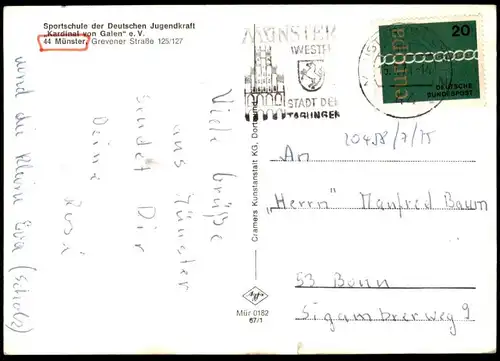 Sportschule der Deutschen Jugendkraft
„Kardinal von Galen" e. V.
44 Münster, Grevener Straße 125/127
MÜNSTER
(WESTF)
STADT DER
TAGUNGEN
20
europa
DEUTSCHE
BUNDESPOST
20458/7/75
Viele Grüße
aus Münster
sendet Dir
Deine
und die kleine Eva (Scholz)
Cramers Kunstanstalt KG, Dortmund
Mür 0182
67/1
An
"Herrn" Manfred Baum
53 Bonn
Sigambrerweg 9